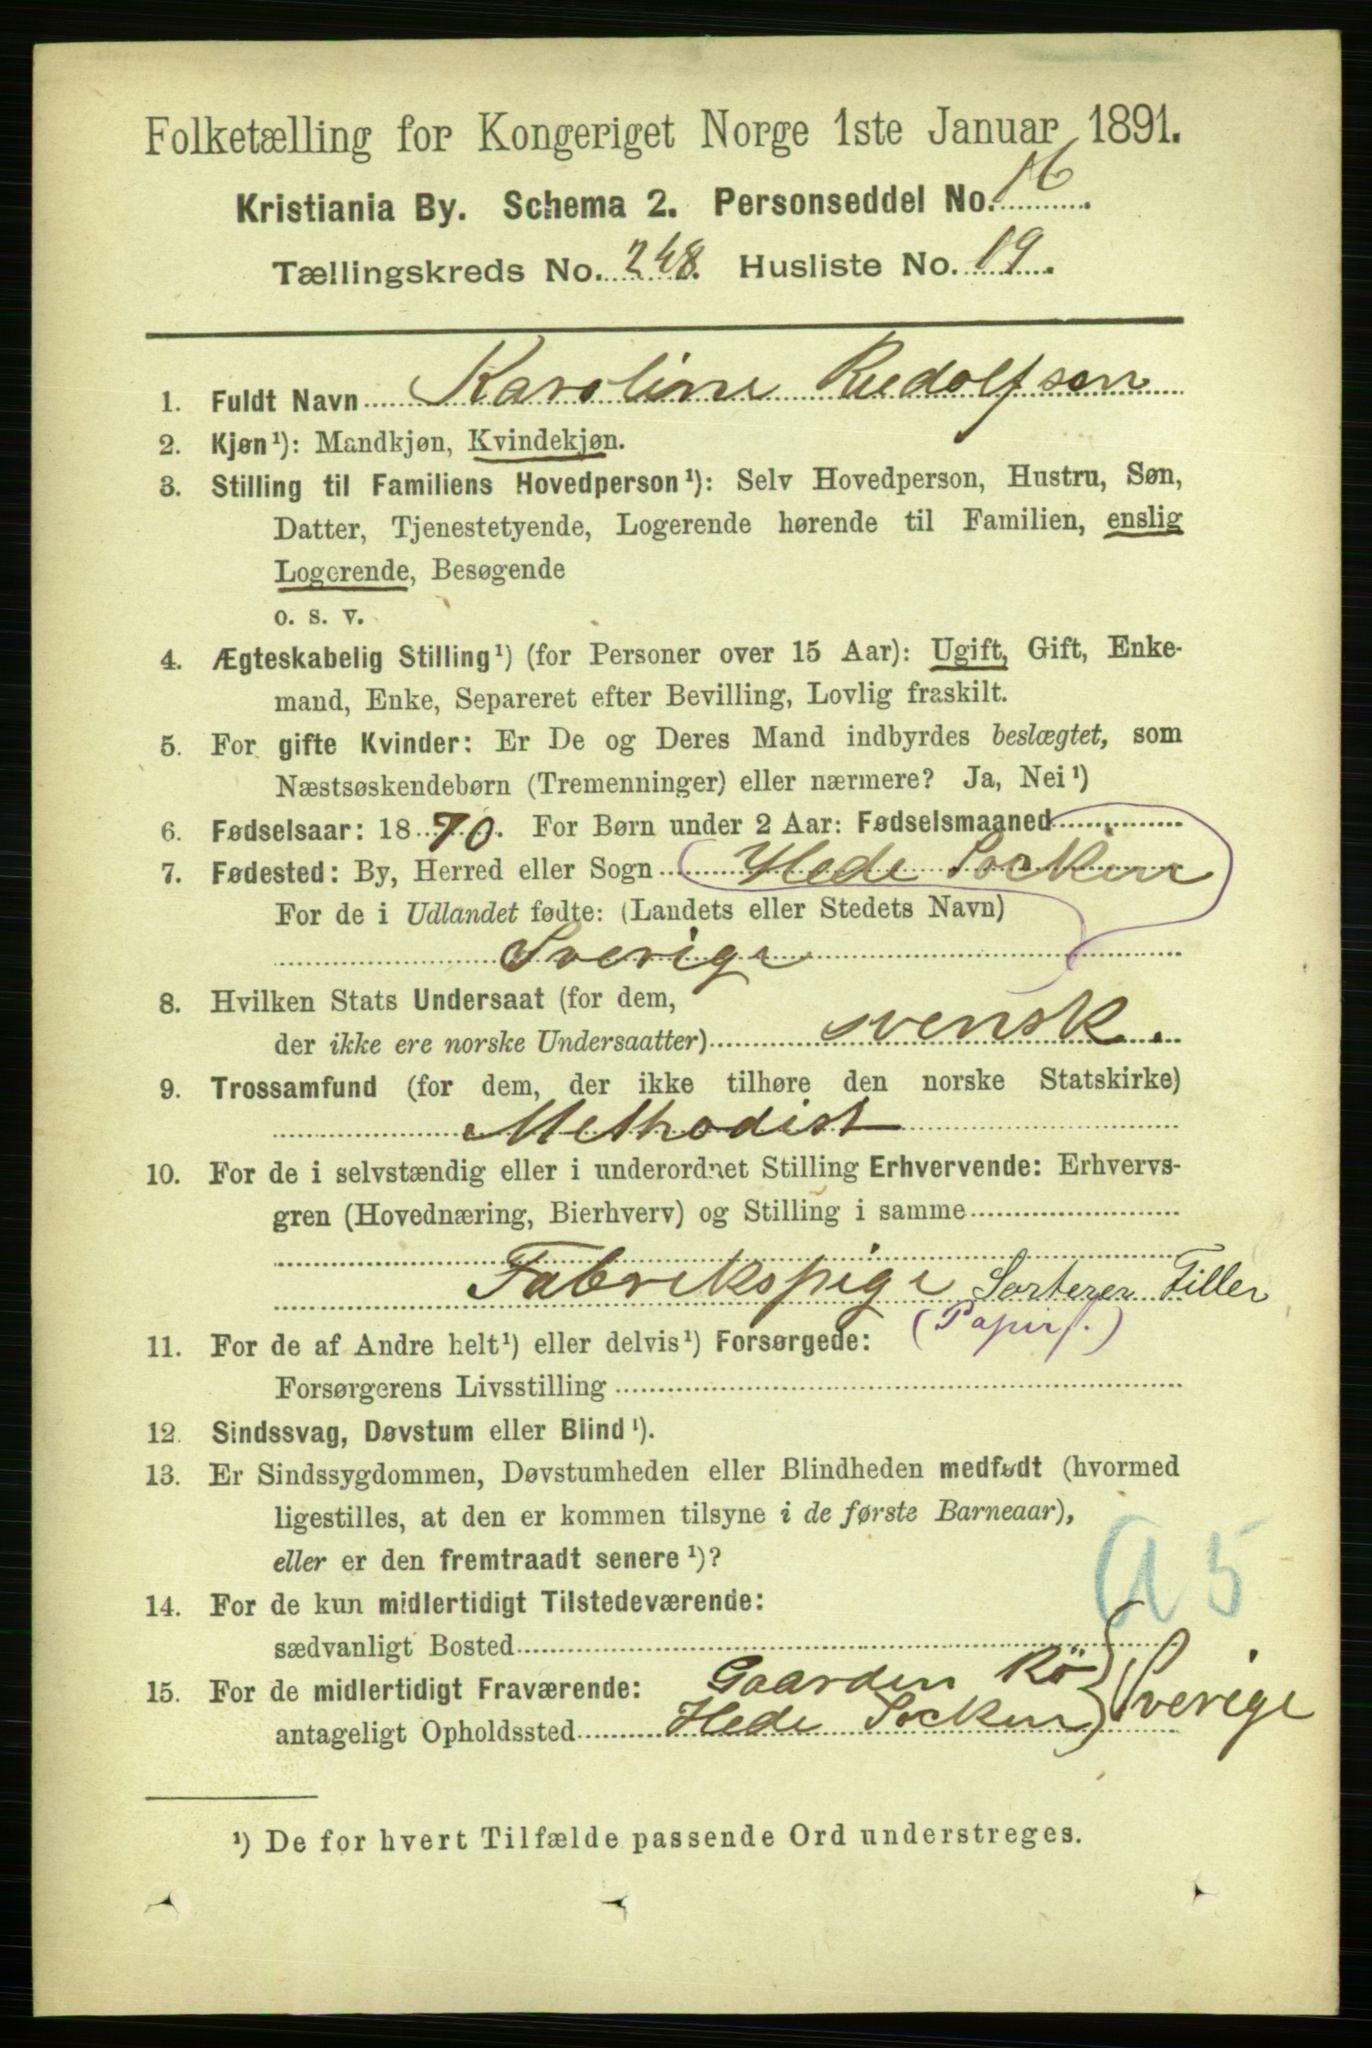 Folketælling for Kongeriget Norge 1ste Januar 1891.
Kristiania By. Schema 2. Personseddel No. 16.
Tællingskreds No. 248. Husliste No. 19.
1. Fuldt Navn Karoline Rudolfsen
2. Kjøn¹): Mandkjøn, Kvindekjøn.
3. Stilling til Familiens Hovedperson¹): Selv Hovedperson, Hustru, Søn,
Datter, Tjenestetyende, Logerende hørende til Familien, enslig
Logerende, Besøgende
o. s. v.
4. Ægteskabelig Stilling¹) (for Personer over 15 Aar): Ugift, Gift, Enke-
mand, Enke, Separeret efter Bevilling, Lovlig fraskilt.
5. For gifte Kvinder: Er De og Deres Mand indbyrdes beslægtet, som
Næstsøskendebørn (Tremenninger) eller nærmere? Ja, Nei¹)
6. Fødselsaar: 1870. For Børn under 2 Aar: Fødselsmaaned
7. Fødested: By, Herred eller Sogn Hede Socken
For de i Udlandet fødte: (Landets eller Stedets Navn)
Sverige
8. Hvilken Stats Undersaat (for dem,
der ikke ere norske Undersaatter) svensk.
9. Trossamfund (for dem, der ikke tilhøre den norske Statskirke)
Methodist
10. For de i selvstændig eller i underordnet Stilling Erhvervende: Erhvervs-
gren (Hovednæring, Bierhverv) og Stilling i samme
Fabrikspige Sorterer Filler
(Papirf.)
11. For de af Andre helt¹) eller delvis¹) Forsørgede:
Forsørgerens Livsstilling
12. Sindssvag, Døvstum eller Blind¹).
13. Er Sindssygdommen, Døvstumheden eller Blindheden medfødt (hvormed
ligestilles, at den er kommen tilsyne i de første Barneaar),
eller er den fremtraadt senere¹)?
a 5
14. For de kun midlertidigt Tilstedeværende:
sædvanligt Bosted
15. For de midlertidigt Fraværende: Gaarden Rö
antageligt Opholdssted Hede Socken Sverige
¹) De for hvert Tilfælde passende Ord understreges.